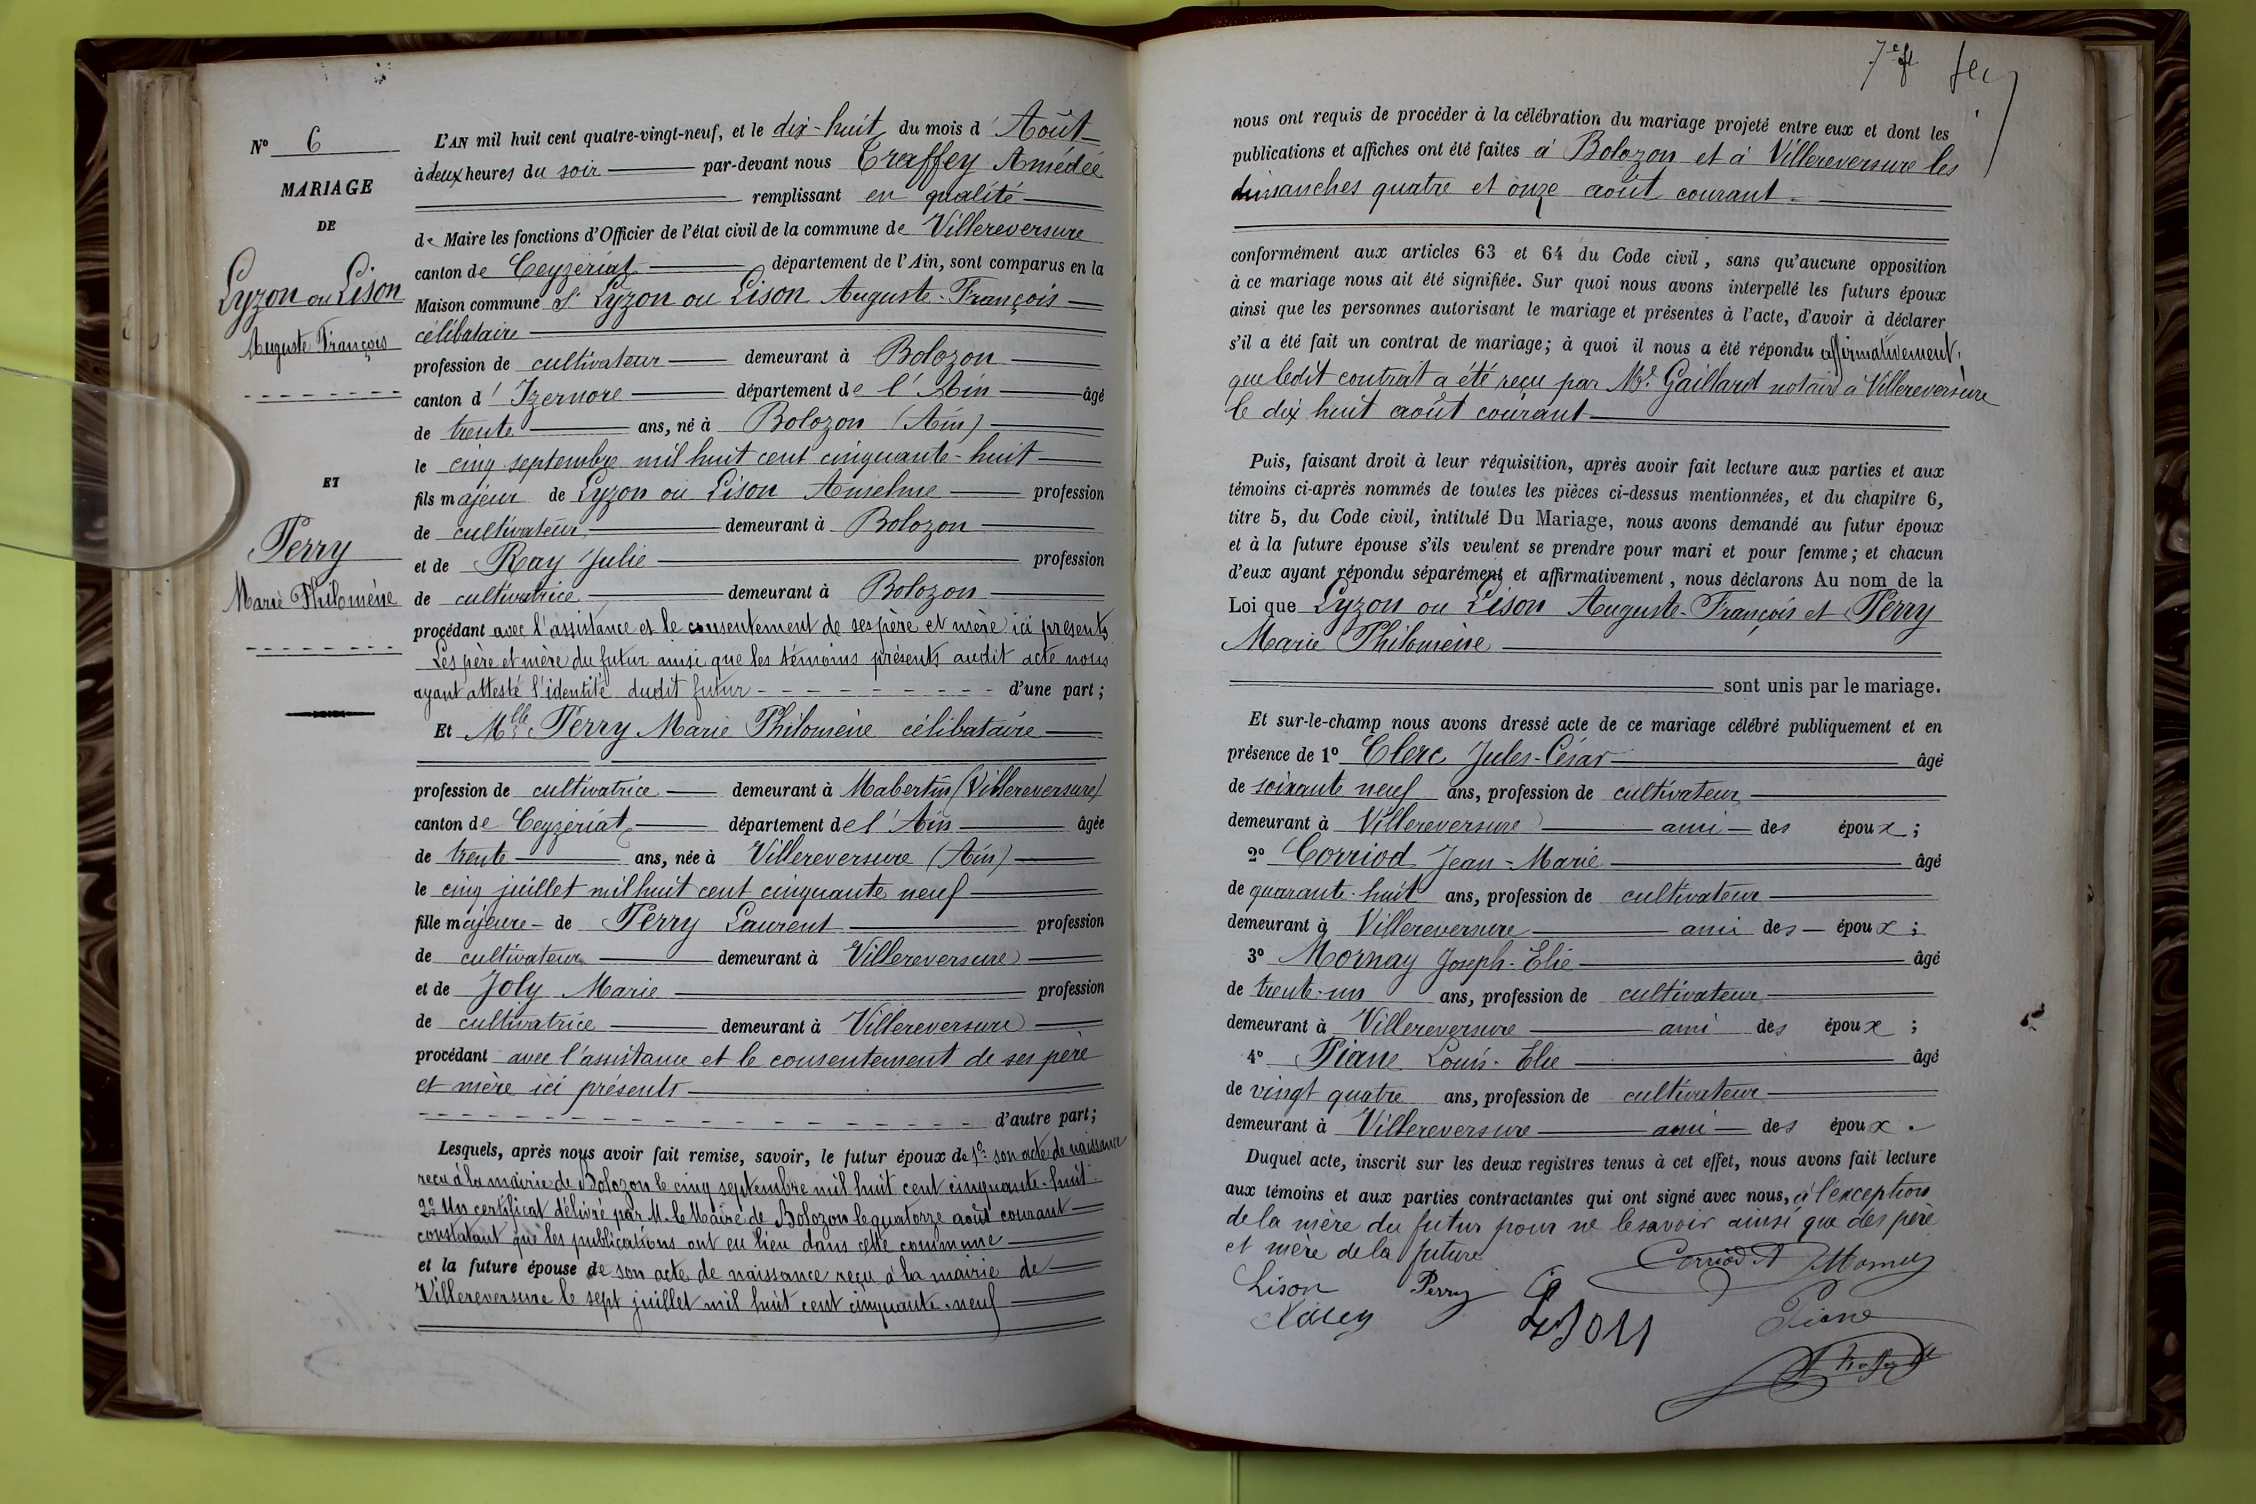 N° 6
MARIAGE
DE
Lyzon ou Lison
Auguste François
ET
Perry
Marie Philomène
L'AN mil huit cent quatre-vingt-neuf, et le dix-huit du mois d'Août
à deux heures du soir par-devant nous Traffey Amédée
remplissant en qualité
de Maire les fonctions d'Officier de l'état civil de la commune de Villereversure
canton de Ceyzériat département de l'Ain, sont comparus en la
Maison commune Sr Lyzon ou Lison Auguste-François
célibataire
profession de cultivateur demeurant à Bolozon
canton d'Izernore département de l'Ain âgé
de trente ans, né à Bolozon (Ain)
le cinq septembre mil huit cent cinquante-huit
fils majeur de Lyzon ou Lison Anselme profession
de cultivateur demeurant à Bolozon
et de Ray Julie profession
de cultivatrice demeurant à Bolozon
procédant avec l'assistance et le consentement de ses père et mère ici présents
Les père et mère du futur ainsi que les témoins présents audit acte nous
ayant attesté l'identité dudit futur d'une part;
Et Mlle Perry Marie Philomène célibataire
profession de cultivatrice demeurant à Mabertin (Villereversure)
canton de Ceyzériat département de l'Ain âgée
de trente ans, née à Villereversure (Ain)
le cinq juillet mil huit cent cinquante neuf
fille majeure de Perry Laurent profession
de cultivateur demeurant à Villereversure
et de Joly Marie profession
de cultivatrice demeurant à Villereversure
procédant avec l'assistance et le consentement de ses père
et mère ici présents
d'autre part;
Lesquels, après nous avoir fait remise, savoir, le futur époux de 1° son acte de naissance
reçu à la mairie de Bolozon le cinq septembre mil huit cent cinquante-huit
2° Un certificat délivré par M. le Maire de Bolozon le quatorze août courant
constatant que les publications ont eu lieu dans cette commune
et la future épouse de son acte de naissance reçu à la mairie de
Villereversure le sept juillet mil huit cent cinquante-neuf
7e ft
nous ont requis de procéder à la célébration du mariage projeté entre eux et dont les
publications et affiches ont été faites à Bolozon et à Villereversure les
dimanches quatre et onze août courant.
conformément aux articles 63 et 64 du Code civil, sans qu'aucune opposition
à ce mariage nous ait été signifiée. Sur quoi nous avons interpellé les futurs époux
ainsi que les personnes autorisant le mariage et présentes à l'acte, d'avoir à déclarer
s'il a été fait un contrat de mariage; à quoi il nous a été répondu affirmativement,
que ledit contrat a été reçu par Me Gaillard notaire à Villereversure
le dix huit août courant
Puis, faisant droit à leur réquisition, après avoir fait lecture aux parties et aux
témoins ci-après nommés de toutes les pièces ci-dessus mentionnées, et du chapitre 6,
titre 5, du Code civil, intitulé Du Mariage, nous avons demandé au futur époux
et à la future épouse s'ils veulent se prendre pour mari et pour femme; et chacun
d'eux ayant répondu séparément et affirmativement, nous déclarons Au nom de la
Loi que Lyzon ou Lison Auguste-François et Perry
Marie Philomène
sont unis par le mariage.
Et sur-le-champ nous avons dressé acte de ce mariage célébré publiquement et en
présence de 1° Clerc Jules-César âgé
de soixante neuf ans, profession de cultivateur
demeurant à Villereversure ami des époux;
2° Corriod Jean-Marie âgé
de quarante-huit ans, profession de cultivateur
demeurant à Villereversure ami des époux;
3° Mornay Joseph-Elie âgé
de trente-un ans, profession de cultivateur
demeurant à Villereversure ami des époux;
4° Piane Louis-Elie âgé
de vingt quatre ans, profession de cultivateur
demeurant à Villereversure ami des époux.
Duquel acte, inscrit sur les deux registres tenus à cet effet, nous avons fait lecture
aux témoins et aux parties contractantes qui ont signé avec nous, à l'exception
de la mère du futur pour ne le savoir ainsi que des père
et mère de la future
Corriod Mornay
Lison Perry
Lison Piane